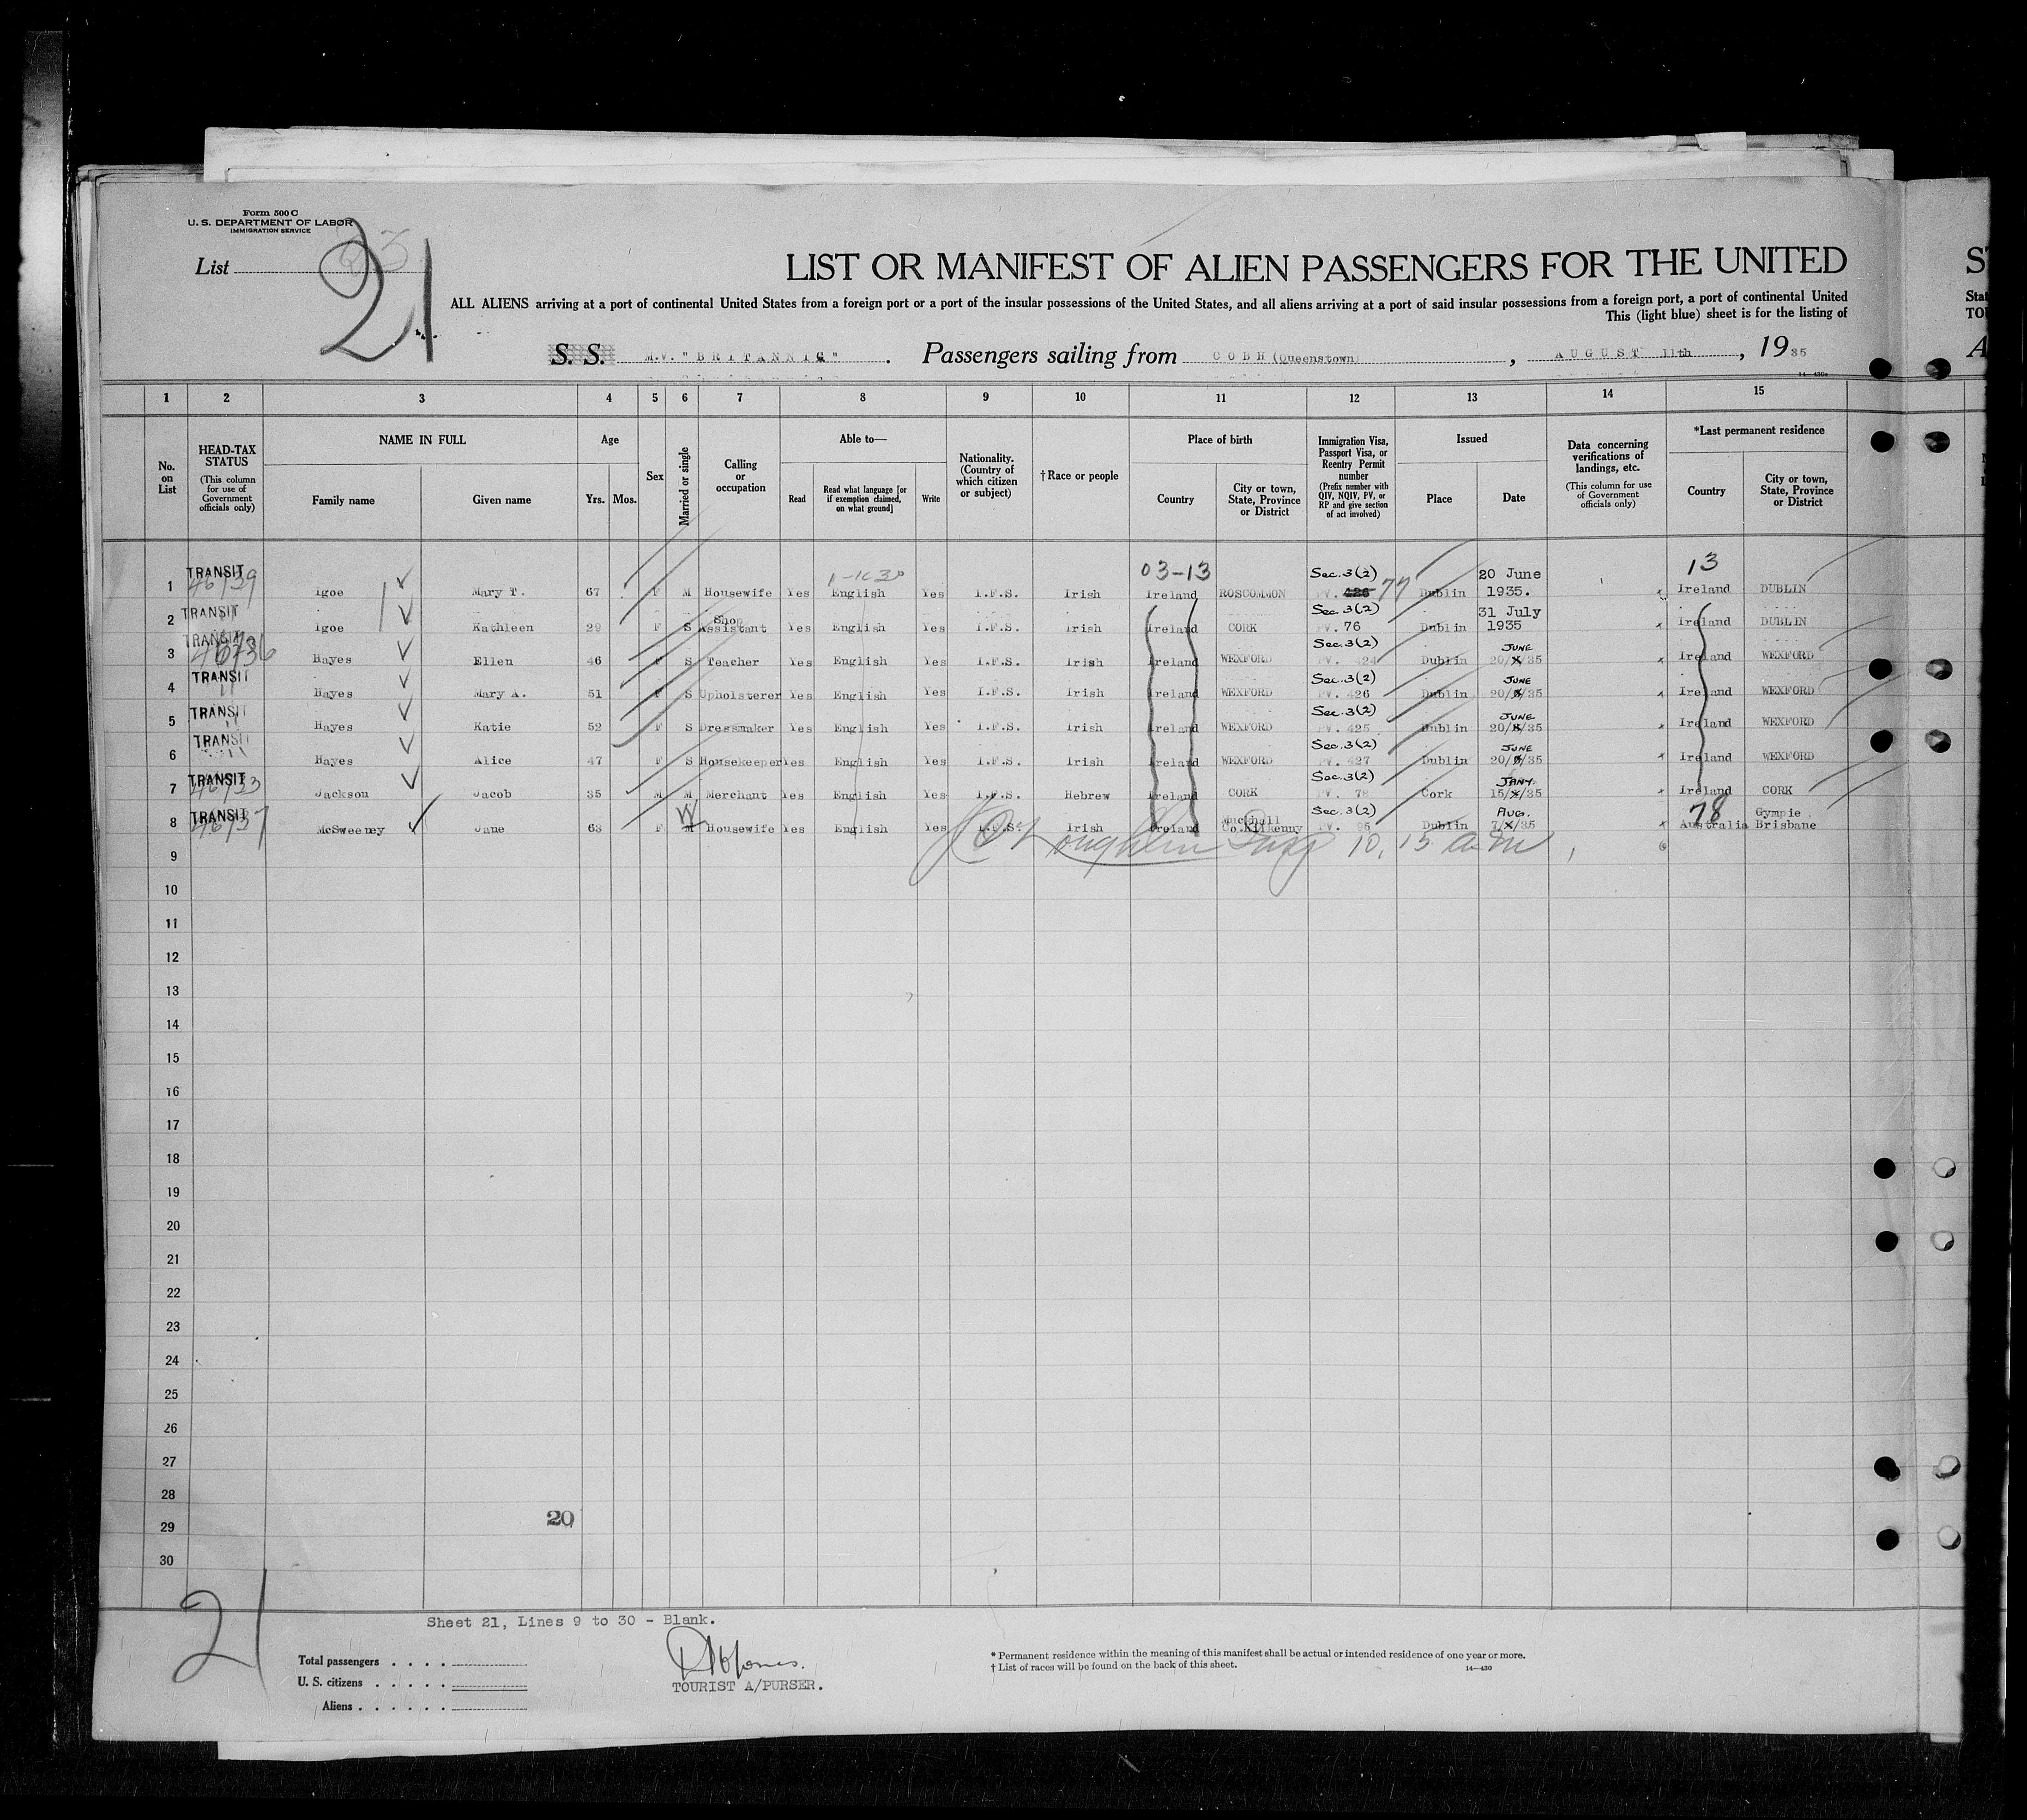 Form 500 C
U. S. DEPARTMENT OF LABOR
IMMIGRATION SERVICE
List 21
LIST OR MANIFEST OF ALIEN PASSENGERS FOR THE UNITED
ALL ALIENS arriving at a port of continental United States from a foreign port or a port of the insular possessions of the United States, and all aliens arriving at a port of said insular possessions from a foreign port, a port of continental United
This (light blue) sheet is for the listing of
S. S. M.V. "BRITANNIC". Passengers sailing from COBH (Queenstown), AUGUST 11th, 1935
14—430a
1 2 3 4 5 6 7 8 9 10 11 12 13 14 15
No. on List
HEAD-TAX STATUS (This column for use of Government officials only)
NAME IN FULL
Family name
Given name
Age
Yrs. Mos.
Sex
Married or single
Calling or occupation
Able to—
Read
Read what language [or if exemption claimed, on what ground]
Write
Nationality. (Country of which citizen or subject)
† Race or people
Place of birth
Country
City or town, State, Province or District
Immigration Visa, Passport Visa, or Reentry Permit number (Prefix number with QIV, NQIV, PV, or RP and give section of act involved)
Issued
Place
Date
Data concerning verifications of landings, etc. (This column for use of Government officials only)
*Last permanent residence
Country
City or town, State, Province or District
03-13
13
1 TRANSIT 46/39 Igoe Mary T. 67 F M Housewife Yes English Yes I.F.S. Irish Ireland ROSCOMMON Sec. 3(2) PV. 426 77 Dublin 20 June 1935. Ireland DUBLIN
2 TRANSIT Igoe Kathleen 29 F S Shop Assistant Yes English Yes I.F.S. Irish Ireland CORK Sec. 3(2) PV. 76 Dublin 31 July 1935 Ireland DUBLIN
3 TRANSIT Hayes Ellen 46 F S Teacher Yes English Yes I.F.S. Irish Ireland WEXFORD Sec. 3(2) PV. 424 Dublin JUNE 20/X/35 Ireland WEXFORD
4 TRANSIT " Hayes Mary A. 51 F S Upholsterer Yes English Yes I.F.S. Irish Ireland WEXFORD Sec. 3(2) PV. 426 Dublin JUNE 20/6/35 Ireland WEXFORD
5 TRANSIT " Hayes Katie 52 F S Dressmaker Yes English Yes I.F.S. Irish Ireland WEXFORD Sec. 3(2) PV. 425 Dublin JUNE 20/6/35 Ireland WEXFORD
6 TRANSIT " Hayes Alice 47 F S Housekeeper Yes English Yes I.F.S. Irish Ireland WEXFORD Sec. 3(2) PV. 427 Dublin JUNE 20/6/35 Ireland WEXFORD
7 TRANSIT 46/33 Jackson Jacob 35 M M Merchant Yes English Yes I.F.S. Hebrew Ireland CORK Sec. 3(2) PV. 78 Cork JANY. 15/X/35 Ireland CORK
8 TRANSIT 46/37 McSweeney Jane 63 F W Housewife Yes English Yes I.F.S. Irish Ireland Co. Kilkenny Sec. 3(2) PV. 95 Dublin AUG. 7/X/35 78 Australia Gympie, Brisbane
9 10, 15 am
10
11
12
13
14
15
16
17
18
19
20
21
22
23
24
25
26
27
28
29 20
30
21
Sheet 21, Lines 9 to 30 - Blank.
Total passengers
U. S. citizens
Aliens
TOURIST A/PURSER.
* Permanent residence within the meaning of this manifest shall be actual or intended residence of one year or more.
† List of races will be found on the back of this sheet.
14—430